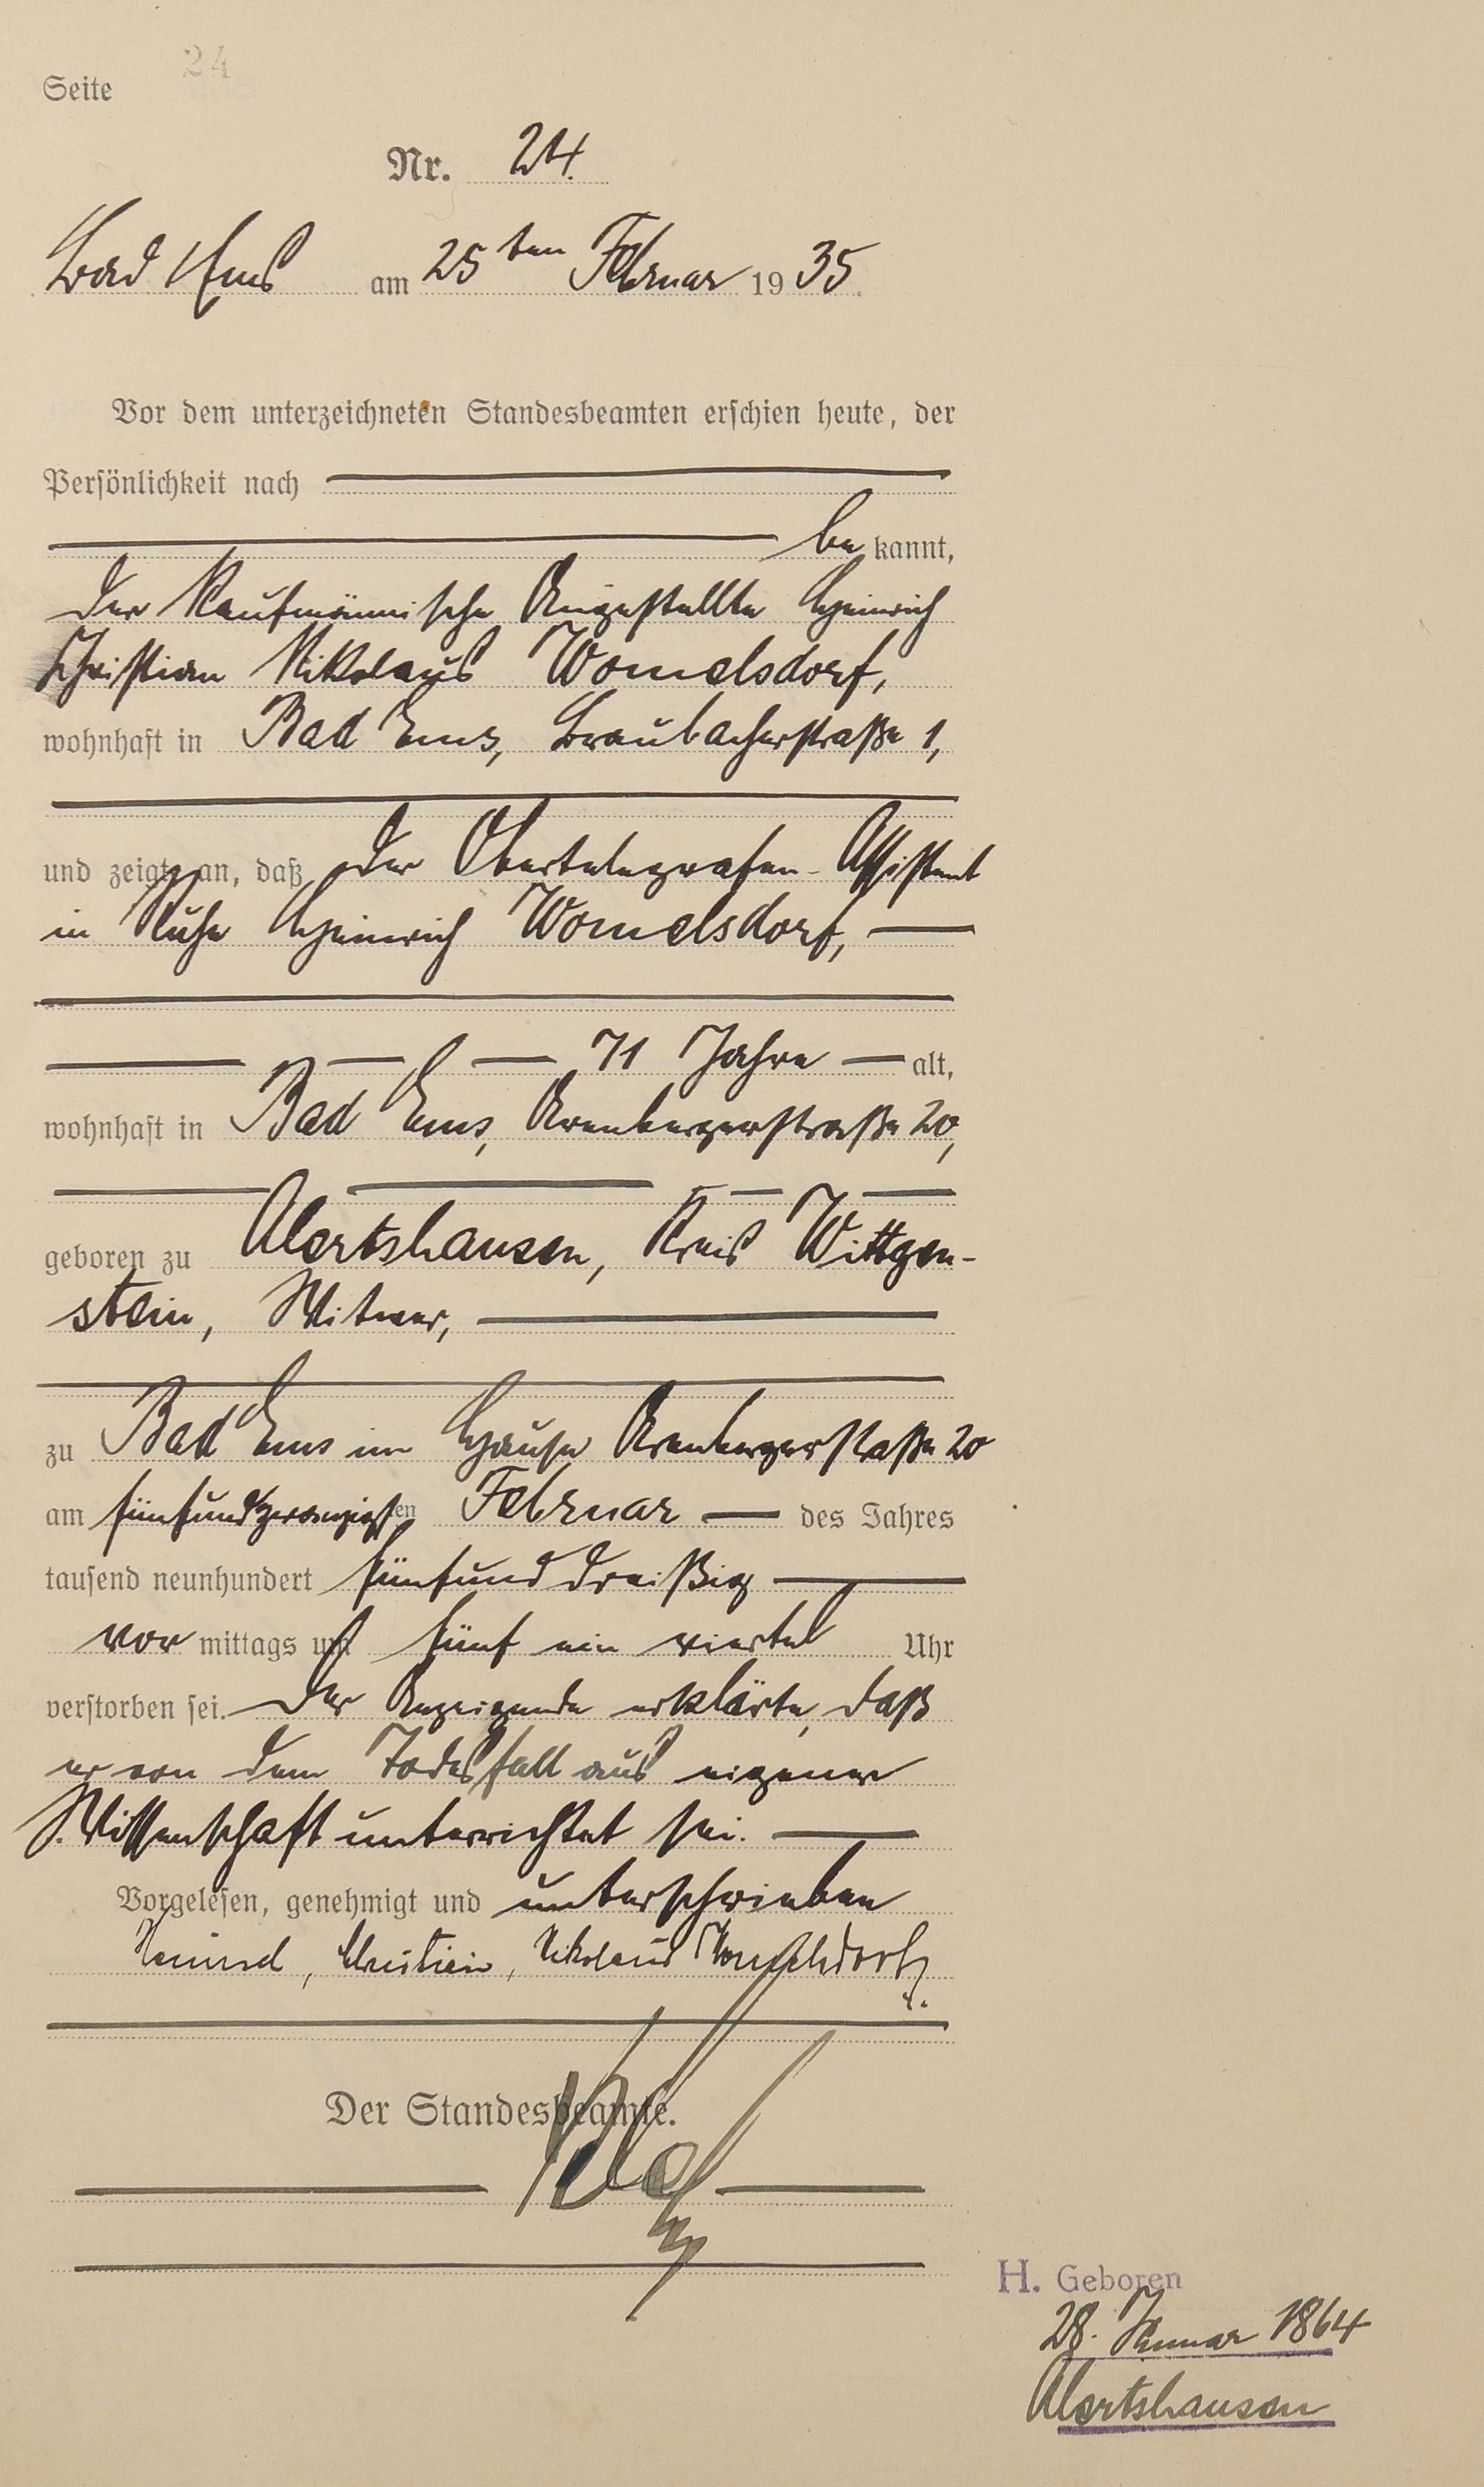 Seite 24
Nr. 24.
Bad Ems am 25ten Februar 1935.
Vor dem unterzeichneten Standesbeamten erschien heute, der
Persönlichkeit nach
be kannt,
der kaufmännische Angestellte Heinrich
Christian Nikolaus Womelsdorf,
wohnhaft in Bad Ems, Braubacherstraße 1,
und zeigte an, daß der Obertelegrafen-Assistent
in Ruhe Heinrich Womelsdorf,
71 Jahre alt,
wohnhaft in Bad Ems, Arenbergerstraße 20,
geboren zu Alertshausen, Kreis Wittgen-
stein, Witwer,
zu Bad Ems im Hause Arenbergerstraße 20
am fünfundzwanzigsten Februar des Jahres
tausend neunhundert fünfunddreißig
vor mittags um fünf ein viertel Uhr
verstorben sei. Der Anzeigende erklärte, daß
er von dem Todesfall aus eigener
Wissenschaft unterrichtet sei.
Vorgelesen, genehmigt und unterschrieben
Heinrich, Christian, Nikolaus Womelsdorf
Der Standesbeamte.
H. Geboren
28. Januar 1864
Alertshausen